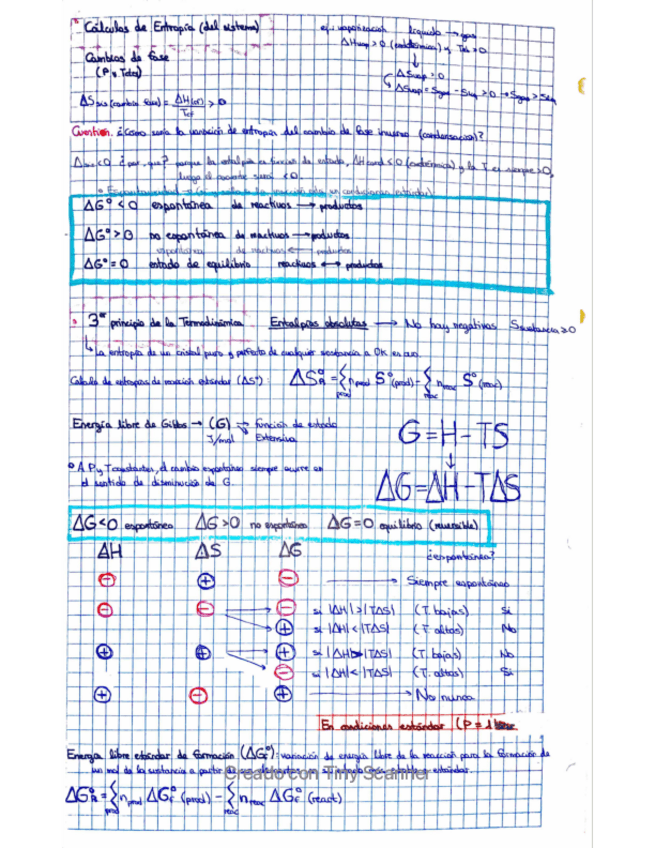 Cálculos de Entropía (del sistema)
ej: vaporización líquido → gas
ΔHvap > 0 (endotérmica) y Teb > 0
Cambios de fase
(P y T ctes)
ΔSvap > 0
ΔSvap = Sgas - Slíq > 0 → Sgas > Slíq
ΔS sis (cambio fase) = ΔH(cf) / Tcf > 0
Cuestión: ¿Cómo sería la variación de entropía del cambio de fase inverso (condensación)?
< 0 ¿por qué? porque la entalpía es función de estado, ΔHcond < 0 (exotérmica) y la T es siempre > 0,
luego el cociente será < 0.
Espontaneidad →
ΔG° < 0 espontánea de reactivos → productos
ΔG° > 0 no espontánea de reactivos → productos
espontánea de reactivos ← productos
ΔG° = 0 estado de equilibrio reactivos ↔ productos
3er principio de la Termodinámica Entalpías absolutas → No hay negativas Ssustancia ≥ 0
↳ La entropía de un cristal puro y perfecto de cualquier sustancia a 0K es cero.
Cálculo de entropías de reacción estándar (ΔS°): ΔS°R = Σ prod nprod S°(prod) - Σ reac nreac S°(reac)
Energía libre de Gibbs → (G) → función de estado
J/mol Extensiva
G = H - TS
A P y T constantes, el cambio espontáneo siempre ocurre en
el sentido de disminución de G.
ΔG = ΔH - TΔS
ΔG < 0 espontáneo ΔG > 0 no espontáneo ΔG = 0 equilibrio (reversible)
ΔH ΔS ΔG ¿espontánea?
⊖ ⊕ ⊖ → Siempre espontáneo
⊖ ⊖ ⊖ si |ΔH| > |TΔS| (T. bajas) Sí
⊕ si |ΔH| < |TΔS| (T. altas) No
⊕ ⊕ ⊕ si |ΔH| > |TΔS| (T. bajas) No
⊖ si |ΔH| < |TΔS| (T. altas) Sí
⊕ ⊖ ⊕ → No nunca
En condiciones estándar (P = 1
Energía libre estándar de formación (ΔG°f): variación de energía libre de la reacción para la formación de
un mol de la sustancia a partir de sus elementos estándar.
Creado con Tiny Scanner
ΔG°R = Σ prod nprod ΔG°f (prod) - Σ reac nreac ΔG°f (react)